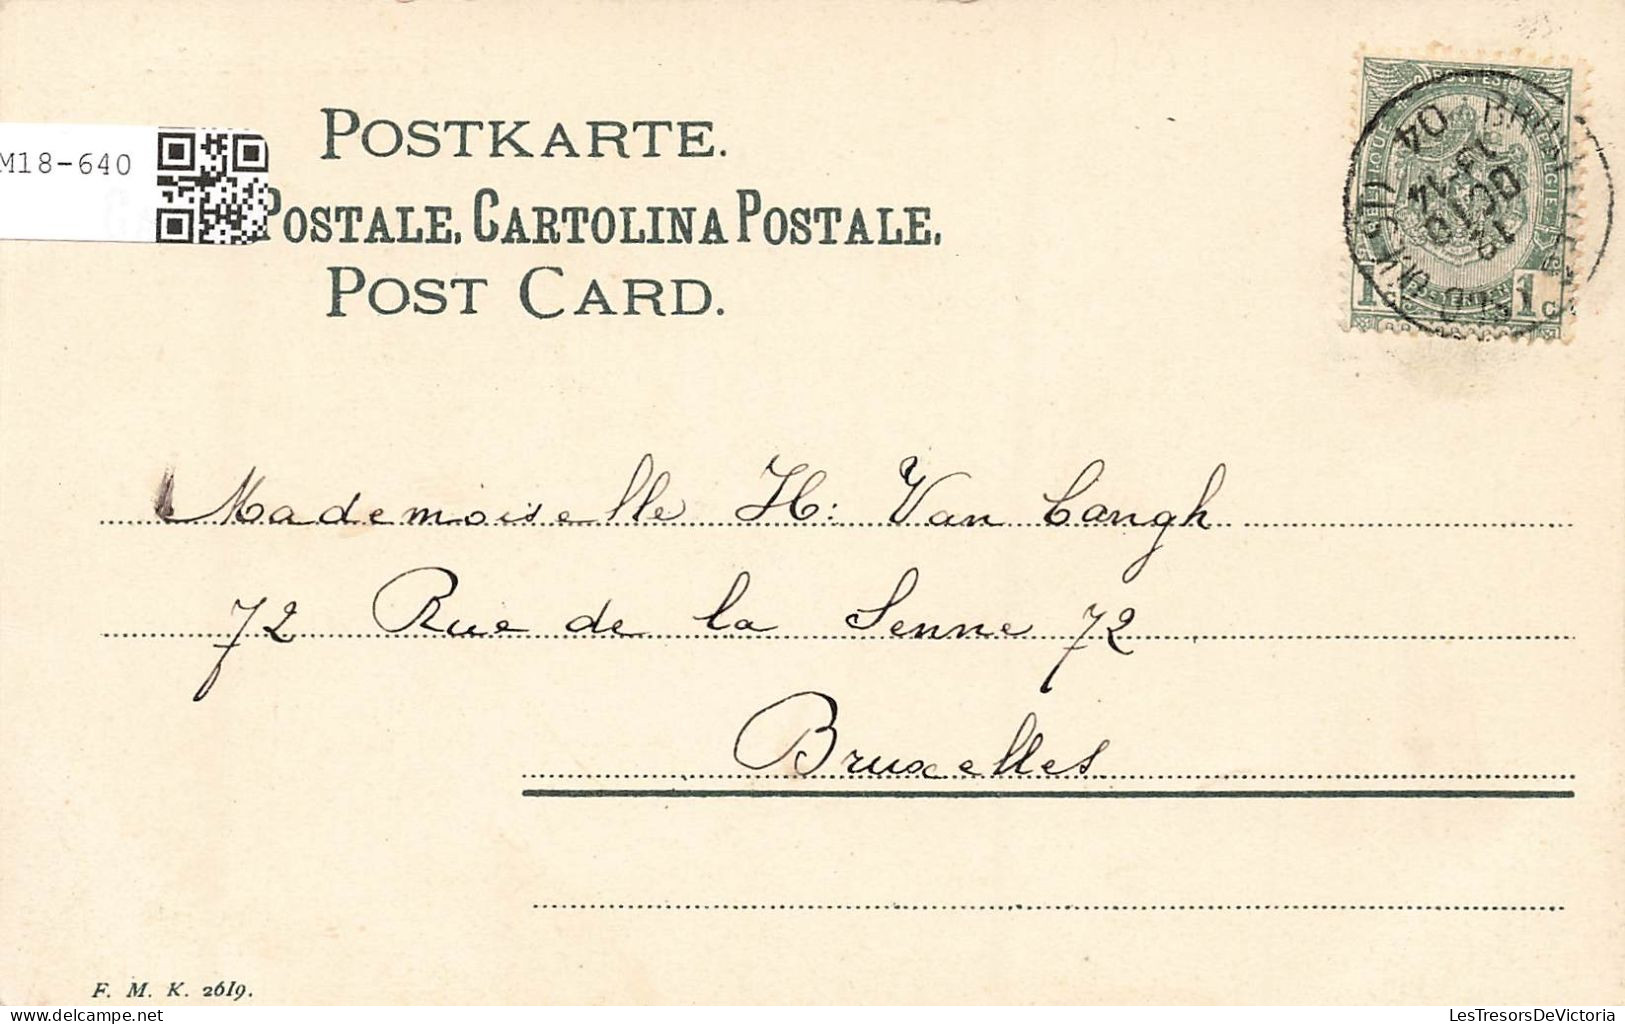 POSTKARTE.
M18-640
POSTALE, CARTOLINA POSTALE.
POST CARD.
POSTES
1 1c
04
13-14
OCTO
19
Mademoiselle H: Van Cangh
72 Rue de la Senne 72
Bruxelles
F. M. K. 2619.
delcampe.net
LesTresorsDeVictoria